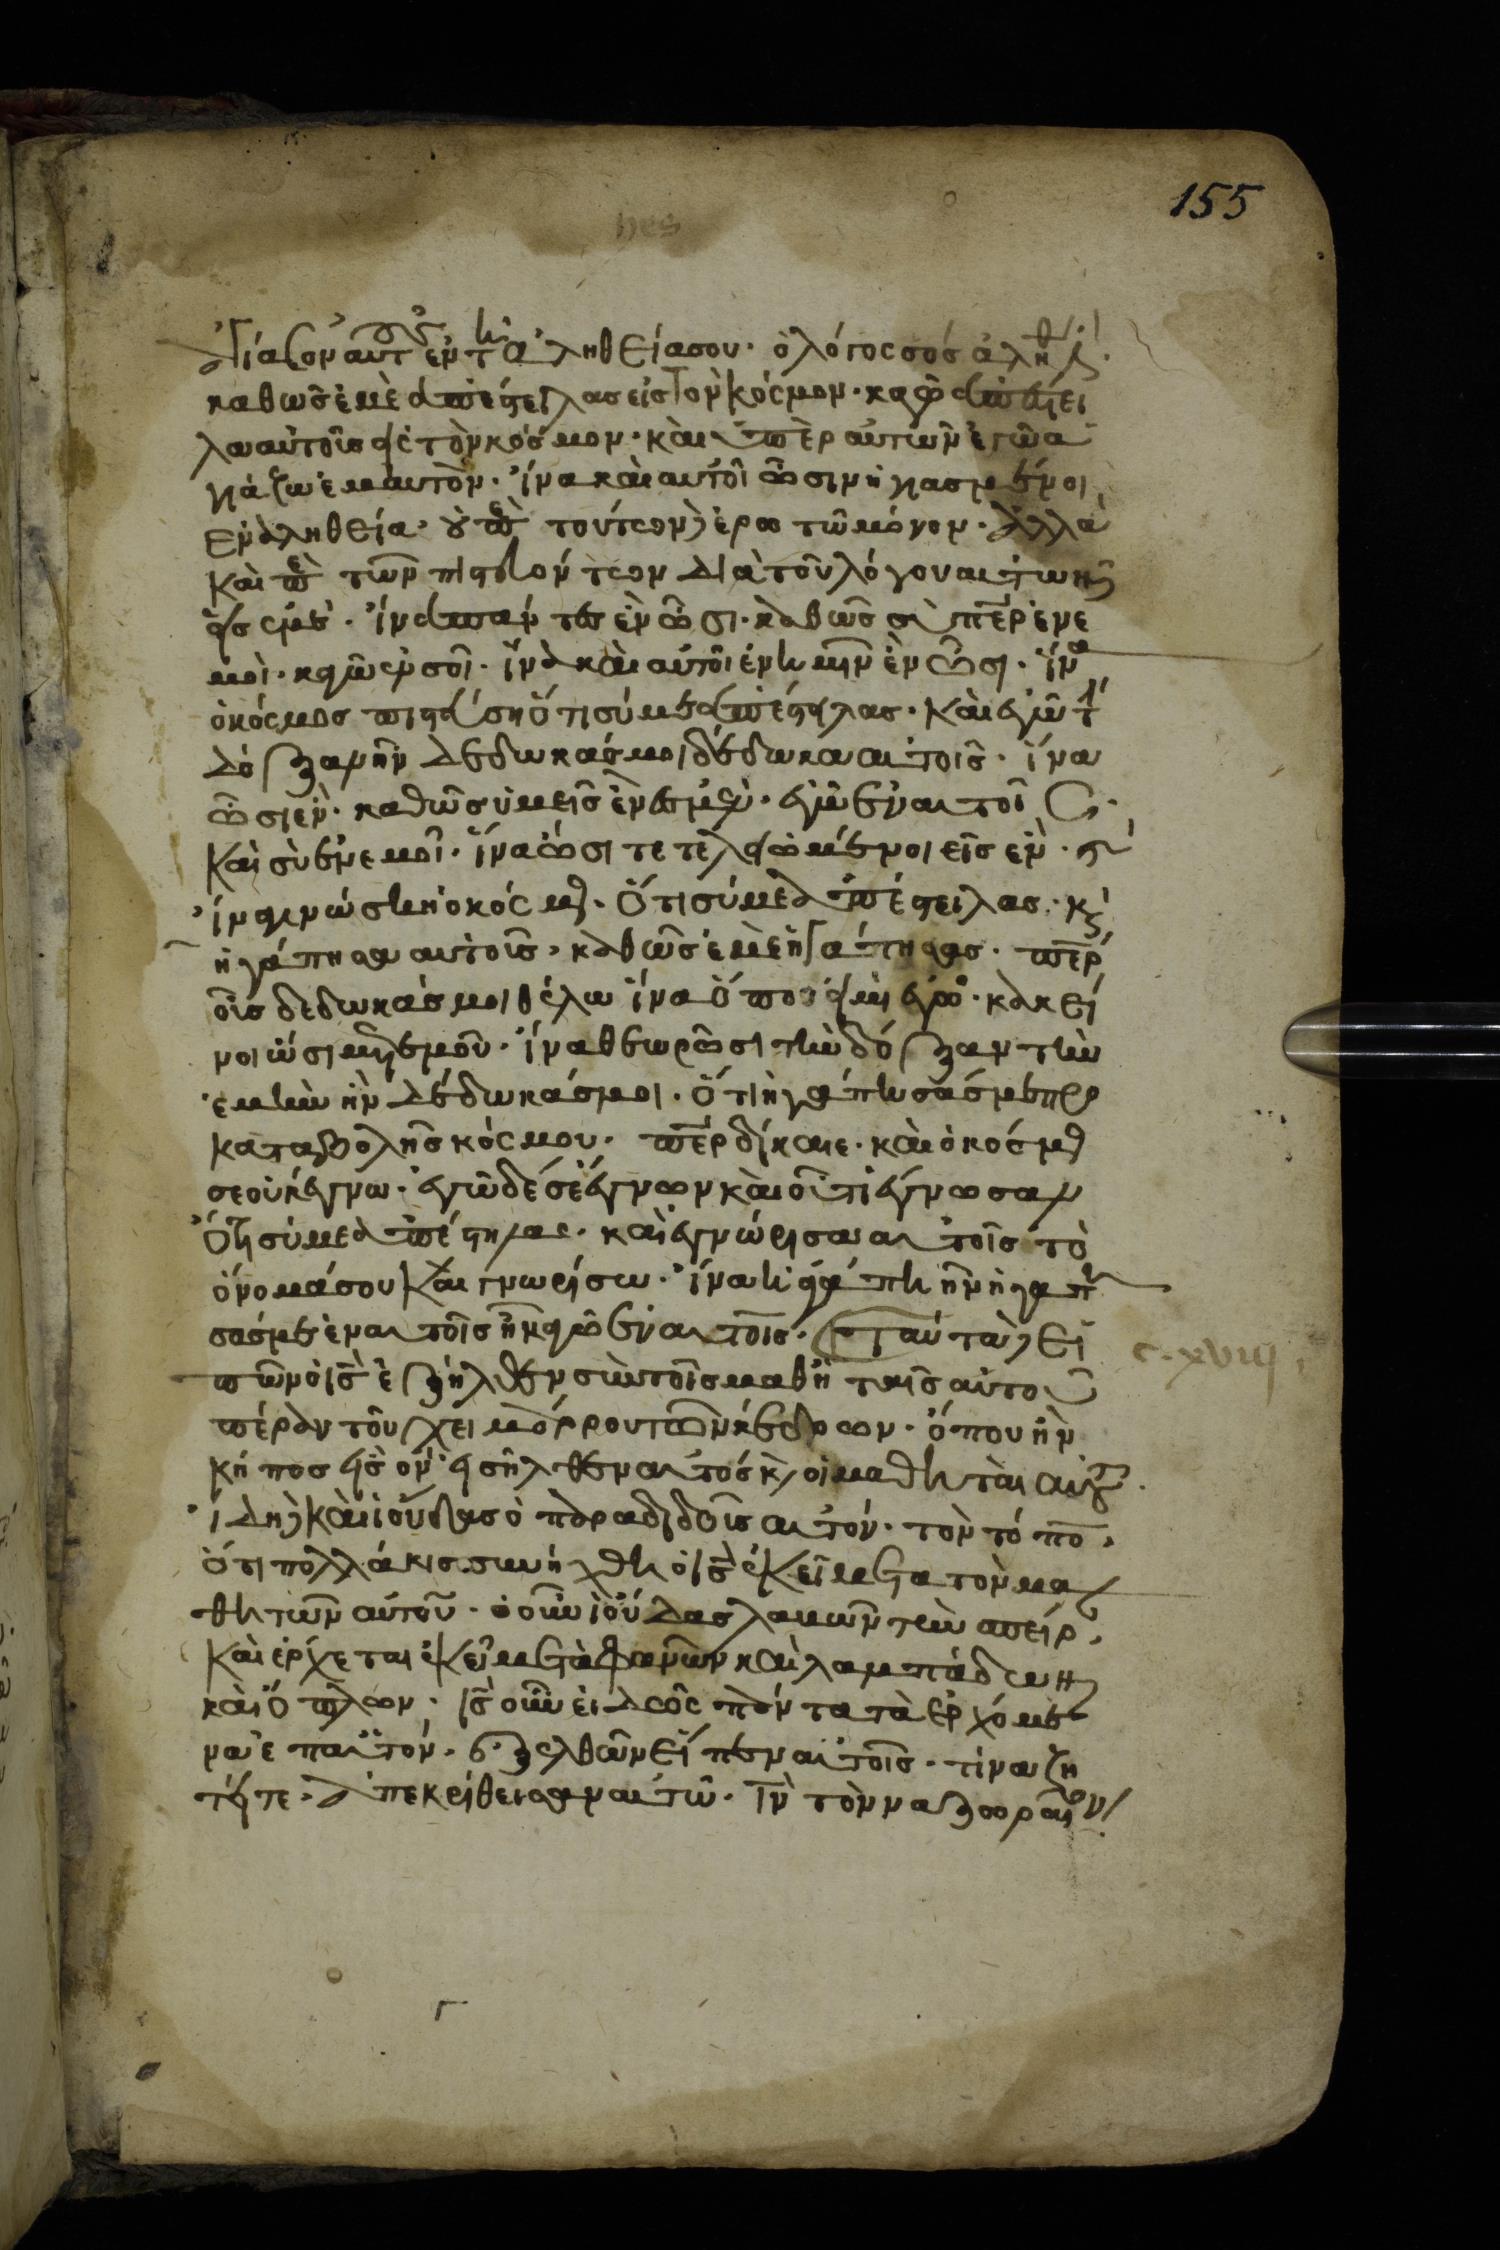 155
ἁγίασον αὐτοὺς ἐν τῇ ἀληθείασου· ὁ λόγος σὸς ἀλήθειά ἐστι·
καθὼς ἐμὲ ἀπέστειλας εἰς τὸν κόσμον· καγὼ ἀπέστει
λα αὐτοὺς εἰς τὸν κόσμον· καὶ ὑπὲρ αὐτῶν ἐγὼ ἁ
γιάζω ἐμαυτὸν· ἵνα καὶ αὐτοὶ ὦσιν ἡγιασμένοι
ἐν ἀληθεία· οὐ περὶ τούτων ἐρωτῶ μόνον· ἀλλὰ
καὶ περὶ τῶν πιστευόντων διὰ τοῦ λόγου αὐτῶν
εἰς ἐμέ· ἵνα πάντες ἓν ὦσι· καθὼς σὺ περ ἐν ἐ
μοὶ· καγὼ ἐν σοὶ· ἵνα καὶ αὐτοὶ ἐν ἡμῖν ἓν ὦσι· ἵνα
ὁ κόσμος πιστεύση ὅτι σύ με ἀπέστειλας· καὶ ἐγὼ τὴν
δόξαν ἣν δέδωκάς μοι δέδωκα αὐτοῖς· ἵνα
ὦσι ἓν· καθὼς ἡμεῖς ἕν ἐσμεν· ἐγὼ ἐν αὐτοῖς·
καὶ σὺ ἐν ἐμοὶ· ἵνα ὦσι τετελειωμένοι εἰς ἓν· καὶ
ἵνα γινώσκη ὁ κόσμος· ὅτι σύ με ἀπέστειλας· καὶ
ἠγάπησα αὐτοὺς· καθὼς ἐμὲ ἠγάπησας· περ
οὓς δέδωκάς μοι θέλω ἵνα ὅπου εἰμὶ ἐγὼ· κακεῖ
νοι ὦσι μετ ἐμοῦ· ἵνα θεωρῶσι τὴν δόξαν τὴν
ἐμὴν ἣν δέδωκάς μοι· ὅτι ἠγάπησάς με προ
καταβολῆς κόσμου· περ δίκαιε· καὶ ὁ κόσμος
σε οὐκ ἔγνω· ἐγὼ δέ σε ἔγνων καὶ οὗτοι ἔγνωσαν
ὅτι σύ με ἀπέστειλας· καὶ ἐγνώρισα αὐτοῖς τὸ
ὄνομά σου καὶ γνωρίσω· ἵνα ἡ ἀγάπη ἣν ἠγάπη
σάς με ἐν αὐτοῖς ἦ καγὼ ἐν αὐτοῖς· ταῦτα εἰ
πὼν ὁ ις ἐξῆλθεν σὺν τοῖς μαθηταῖς αὐτοῦ
c. xviij
πέραν τοῦ χειμάρρου τῶν κέδρων· ὅπου ἦν
κῆπος εἰς ὃν εἰσῆλθεν αὐτὸς καὶ οἱ μαθηταὶ αὐτοῦ·
ἤδη καὶ ἰούδας ὁ παραδιδοὺς αὐτόν· τὸν τόπον·
ὅτι πολλάκις συνήχθη ὁ ις ἐκεῖ μετα τῶν μα
θητῶν αὐτοῦ· ὁ οὖν ἰούδας λαβὼν τὴν σπεῖρ·
καὶ ἔρχεται ἐκεῖ μετὰ φανῶν καὶ λαμπάδων
καὶ ὅπλων· ις οὖν εἰδὼς πάντα τὰ ἐρχόμε
να ἐπ αὐτόν· ἐξελθὼν εἶπεν αὐτοῖς· τίνα ζη
τεῖτε· ἀπεκρίθησαν αὐτῶ· ιν τὸν ναζωραῖον